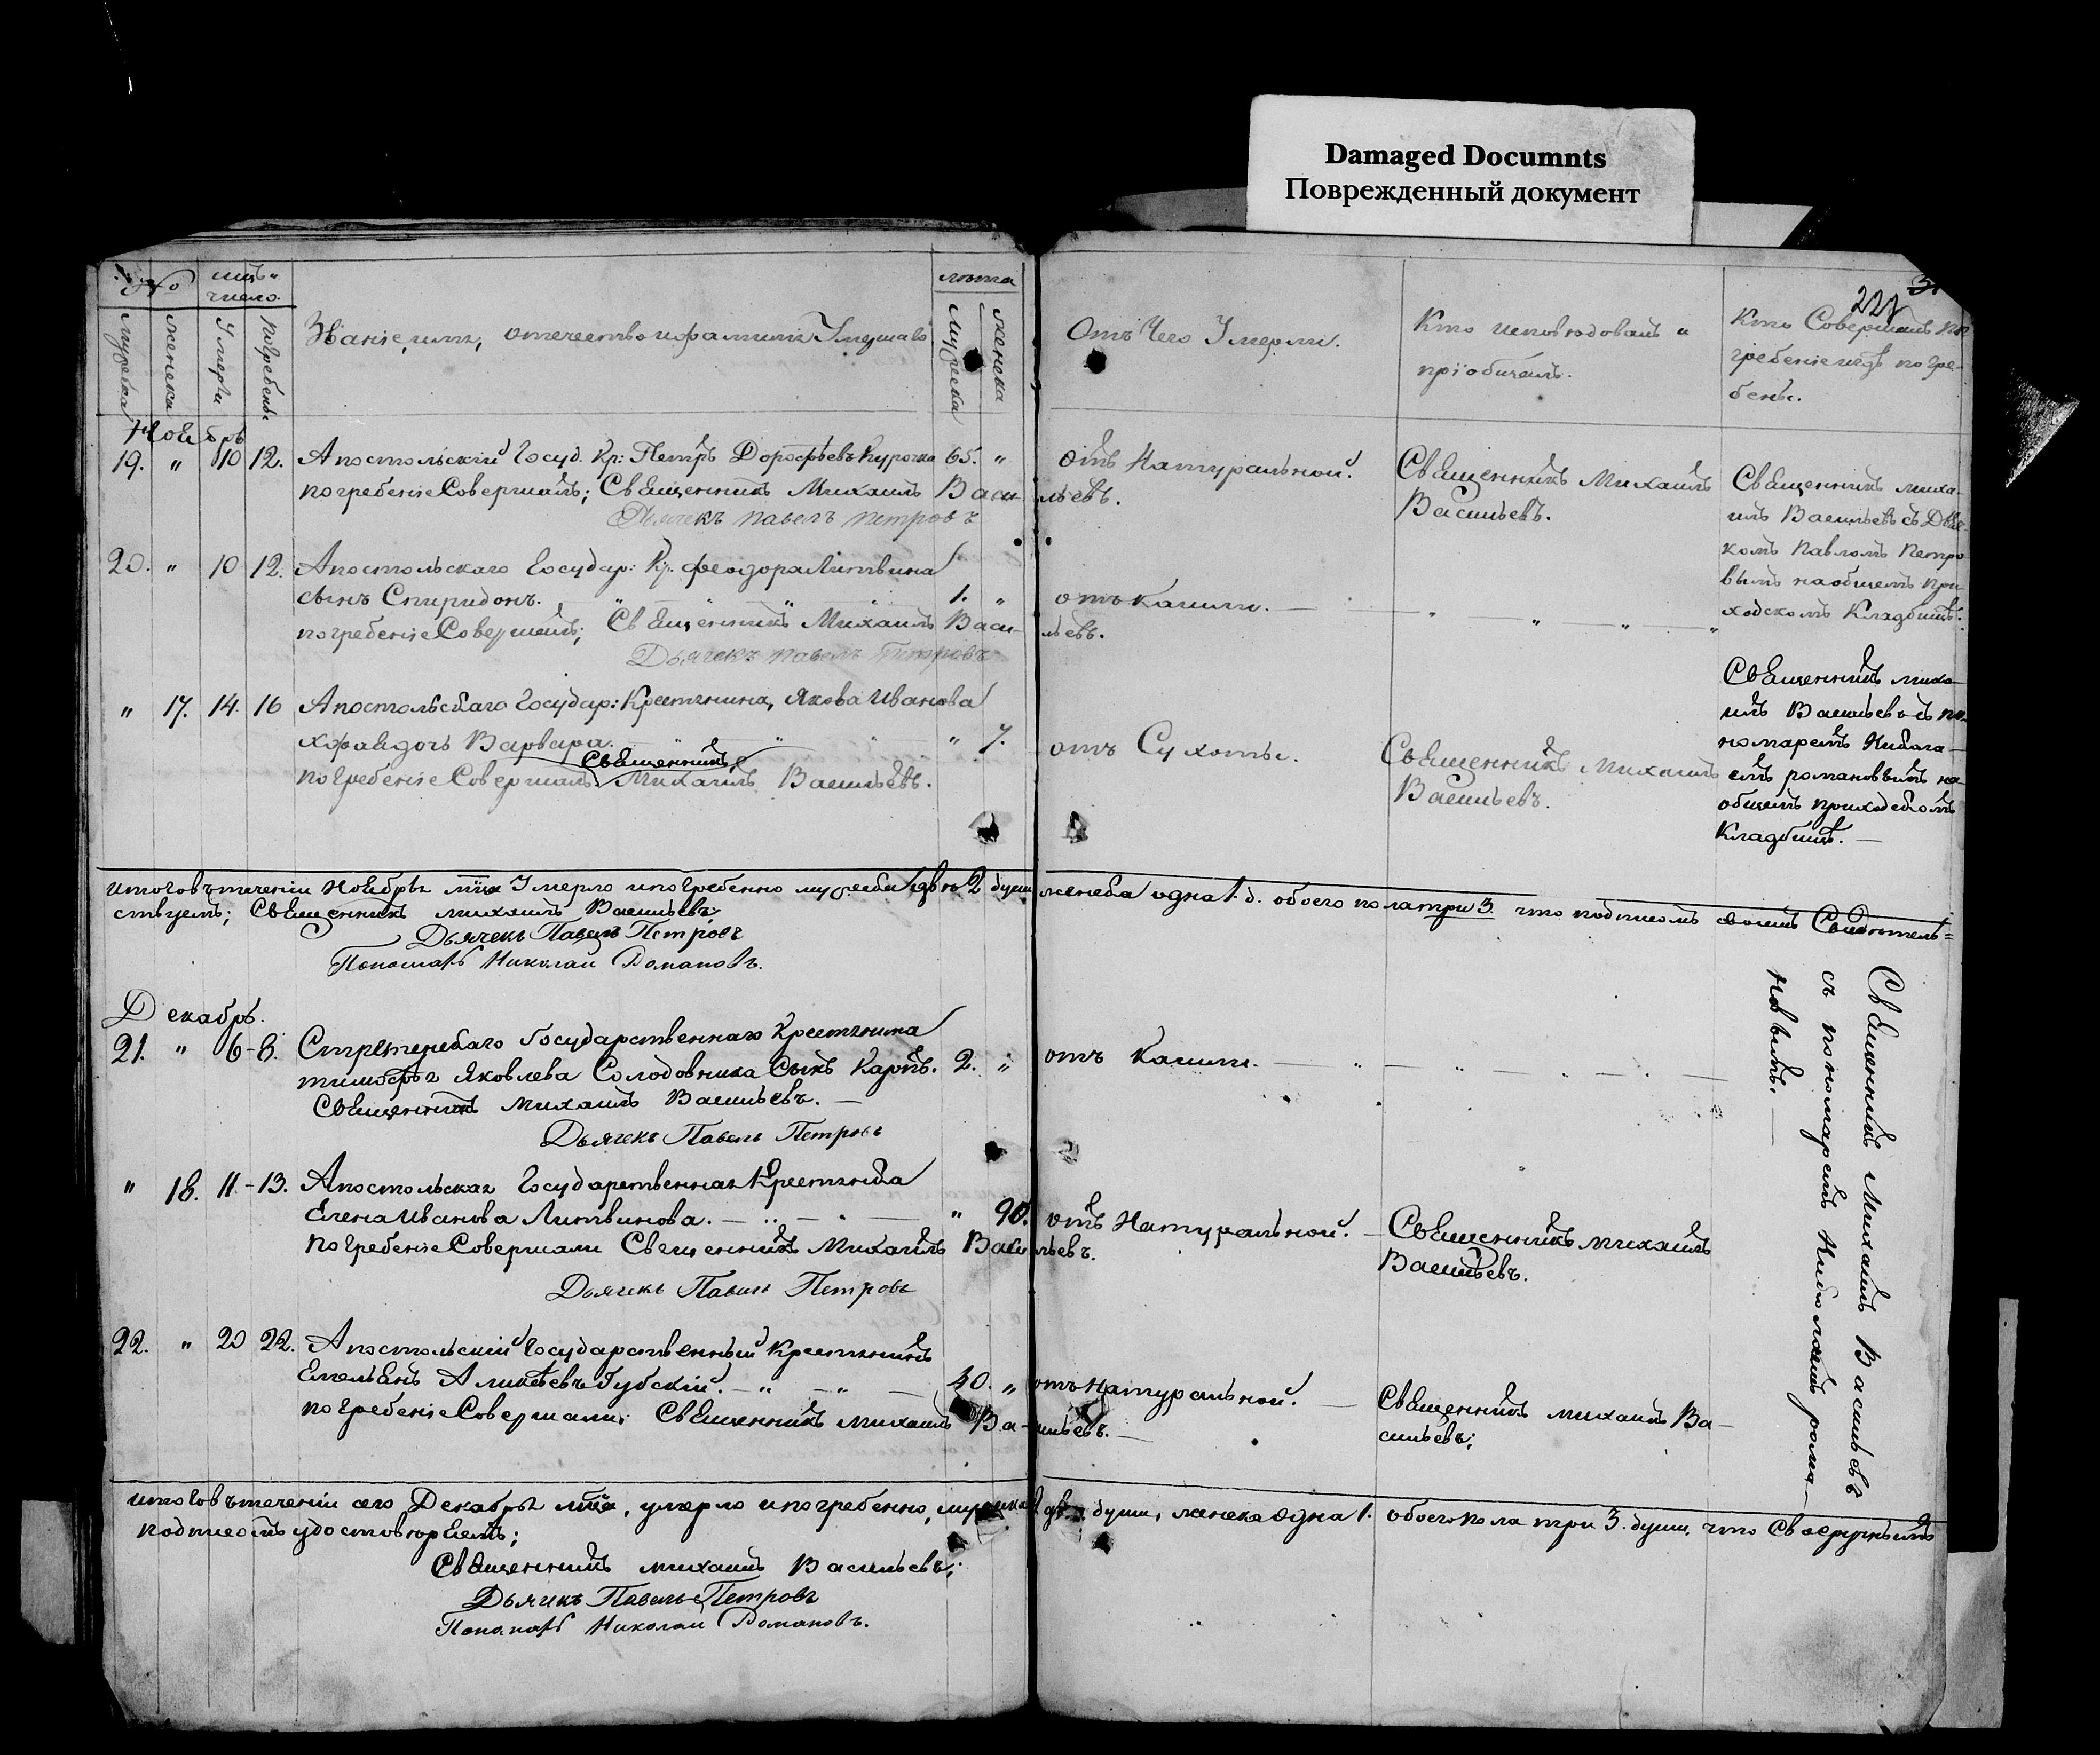 Damaged Documnts
Поврежденный документ
227
№
мць"
число.
лѣта
мужеска
женска
Умерти
погребены
Званіе, имя, отечество и фамилія Умершаго
мужеска
женска
Отъ Чего Умерли.
Кто исповѣдовалъ и
пріобщалъ.
Кто Совершалъ по
гребеніе и гдѣ погре-
бены.
Ноябрь
19. " 10 12. Апостольскій Госуд. Кр: Петръ Дорофѣевъ Курочка 65. " отъ Натуральной. Священникъ Михаилъ
Васильевъ.
погребеніе Совершалъ; Священникъ Михаилъ Васильевъ.
Дьячекъ Павелъ Петровъ
Священникъ миха-
илъ Васильевъ съ Дьяч
комъ Павломъ Петро
вымъ на общемъ при
ходскомъ Кладбищѣ.
20. " 10 12. Апостольскаго Государ: Кр. Феодора Литвина
сынъ Спиридонъ. " " 1. " отъ Кашли. — " — " — " — "
погребеніе Совершалъ; Священникъ Михаилъ Васи-льевъ.
Дьячекъ Павелъ Петровъ
" 17. 14. 16 Апостольскаго Государ: Крестянина, Якова Иванова
дочь Варвара. " " " 7. отъ Сухоты. Священникъ Михаилъ
Васильевъ.
Священникъ
погребеніе Совершалъ Михаилъ Васильевъ.
Священникъ миха-
илъ Васильевъ съ по-
номаремъ Никола-
емъ романовымъ на
общемъ приходскомъ
Кладбищѣ. —
итого въ теченіи Ноября мца Умерло и погребенно мужеска двѣ 2 души женска одна 1. д. обоего пола три 3. что подписомъ своимъ Свидѣтель=
ствуемъ; Священникъ михаилъ Васильевъ;
Дьячекъ Павелъ Петровъ
Пономарь Николай Романовъ.
Декабрь.
21. " 6-8. Стрѣтенскаго Государственнаго Крестянина
тимофѣя Яковлева Солодовника Сынъ Карпъ. 2. " отъ Кашли. — " — " — " — " —
Священникъ михаилъ Васильевъ. —
Дьячекъ Павелъ Петровъ
" 18. 11.-13. Апостольская Государственная Крестянка
Елена Иванова Литвинова. — " — " — " 90. отъ Натуральной. — Священникъ михаилъ
Васильевъ.
погребеніе Совершали Священникъ Михаилъ Васильевъ.
Дьячекъ Павелъ Петровъ
22. " 20 22. Апостольскій Государственный Крестянинъ
Емельянъ Губскій. — " — " — 40. " отъ Натуральной. — Священникъ михаилъ Ва-
сильевъ;
погребеніе Совершали; Священникъ михаилъ Ва-сильевъ. —
Священникъ Михаилъ Васильевъ
съ пономаремъ Николаемъ рома-
новымъ. —
итого въ теченіи сего Декабря мца, умерло и погребенно, мужеска 2 души, женска одна 1. обоего пола три 3. души, что своеручнымъ
подписомъ удостовѣряемъ;
Священникъ михаилъ Васильевъ;
Дьячекъ Павелъ Петровъ
Пономарь Николай Романовъ.